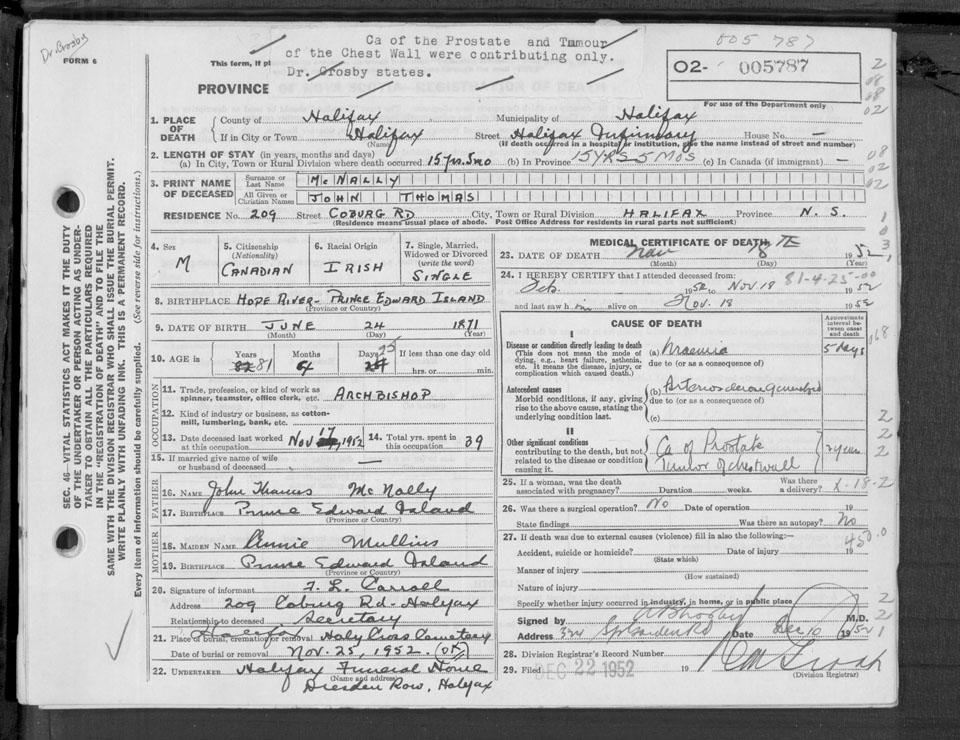 Dr Crosby
FORM 6
Ca of the Prostate and Tumour
of the Chest Wall were contributing only.
Dr. Crosby states.
This form, if pl
PROVINCE
005 787
O2- 005787
For use of the Department only
1. PLACE OF DEATH
County of Halifax Municipality of Halifax
If in City or Town Halifax Street Halifax Infirmary House No. —
(Name) (If death occurred in a hospital or institution, give the name instead of street and number)
2. LENGTH OF STAY (in years, months and days)
(a) In City, Town or Rural Division where death occurred 15 yrs. 5 mo (b) In Province 15 YRS 5 MOS (c) In Canada (if immigrant) —
3. PRINT NAME OF DECEASED
Surname or Last Name McNALLY
All Given or Christian Names JOHN THOMAS
RESIDENCE No. 209 Street COBURG RD City, Town or Rural Division HALIFAX Province N. S.
(Residence means usual place of abode. Post Office Address for residents in rural parts not sufficient)
4. Sex M
5. Citizenship (Nationality) CANADIAN
6. Racial Origin IRISH
7. Single, Married, Widowed or Divorced (write the word) SINGLE
8. BIRTHPLACE HOPE RIVER - PRINCE EDWARD ISLAND
(Province or Country)
9. DATE OF BIRTH JUNE 24 1871
(Month) (Day) (Year)
10. AGE in Years 81 Months 4 Days 25 If less than one day old
hrs. or min.
OCCUPATION
11. Trade, profession, or kind of work as spinner, teamster, office clerk, etc. ARCHBISHOP
12. Kind of industry or business, as cotton-mill, lumbering, bank, etc.
13. Date deceased last worked at this occupation NOV 17, 1952
14. Total yrs. spent in this occupation 39
15. If married give name of wife or husband of deceased
FATHER
16. NAME John Thomas McNally
17. BIRTHPLACE Prince Edward Island
(Province or Country)
MOTHER
18. MAIDEN NAME Annie Mullins
19. BIRTHPLACE Prince Edward Island
(Province or Country)
20. Signature of informant F. L. Carroll
Address 209 Coburg Rd. Halifax
Relationship to deceased Secretary
21. Place of burial, cremation or removal Halifax Holy Cross Cemetery
Date of burial or removal Nov. 25, 1952. (OK)
22. UNDERTAKER Halifax Funeral Home
(Name and address)
Dresden Row, Halifax
MEDICAL CERTIFICATE OF DEATH
23. DATE OF DEATH Nov 18 TH 1952
(Month) (Day) (Year)
24. I HEREBY CERTIFY that I attended deceased from: 81-4-25-00
Feb. 1952 to Nov 18 1952
and last saw h im alive on Nov. 18 1952
CAUSE OF DEATH
Approximate interval between onset and death
I
Disease or condition directly leading to death
(This does not mean the mode of dying, e.g., heart failure, asthenia, etc. It means the disease, injury, or complication which caused death.)
(a) Uraemia 5 days
due to (or as a consequence of)
Antecedent causes
Morbid conditions, if any, giving rise to the above cause, stating the underlying condition last.
(b)
due to (or as a consequence of)
(c)
II
Other significant conditions contributing to the death, but not related to the disease or condition causing it.
Ca of Prostate
Tumor of chest wall
2 years
25. If a woman, was the death associated with pregnancy? Duration weeks. Was there a delivery? X-18-2
26. Was there a surgical operation? No Date of operation 19
State findings Was there an autopsy? No
27. If death was due to external causes (violence) fill in also the following:—
450.0
Accident, suicide or homicide? Date of injury 19
(State which)
Manner of injury
(How sustained)
Nature of injury
Specify whether injury occurred in industry, in home, or in public place
Signed by M.D.
Address Date Dec 10 1952
28. Division Registrar's Record Number
29. Filed DEC 22 1952 19
(Division Registrar)
SEC. 46—VITAL STATISTICS ACT MAKES IT THE DUTY
OF THE UNDERTAKER OR PERSON ACTING AS UNDER-
TAKER TO OBTAIN ALL THE PARTICULARS REQUIRED
IN THE "REGISTRATION OF DEATH" AND TO FILE THE
SAME WITH THE DIVISION REGISTRAR WHO SHALL ISSUE THE BURIAL PERMIT.
WRITE PLAINLY WITH UNFADING INK. THIS IS A PERMANENT RECORD.
Every item of information should be carefully supplied. (See reverse side for instructions.)